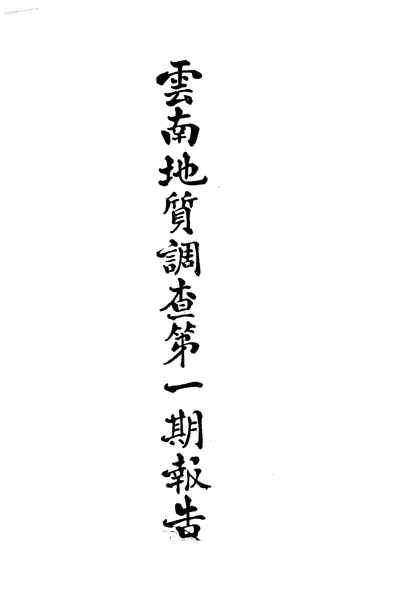 雲南地質調查第一期報告